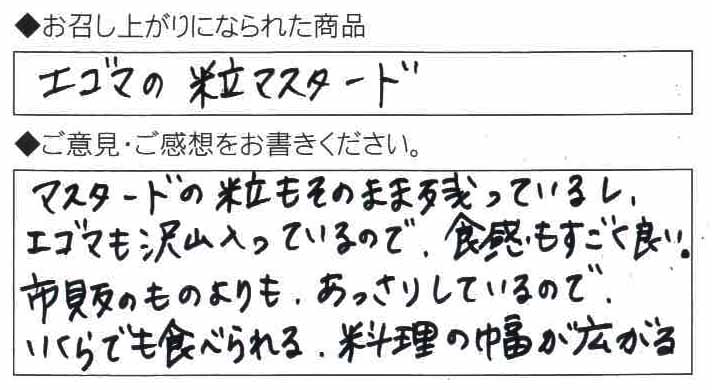 ◆お召し上がりになられた商品
エゴマの粒マスタード
◆ご意見・ご感想をお書きください。
マスタードの粒もそのまま残っているし、
エゴマも沢山入っているので、食感もすごく良い。
市販のものよりも、あっさりしているので、
いくらでも食べられる、料理の幅が広がる